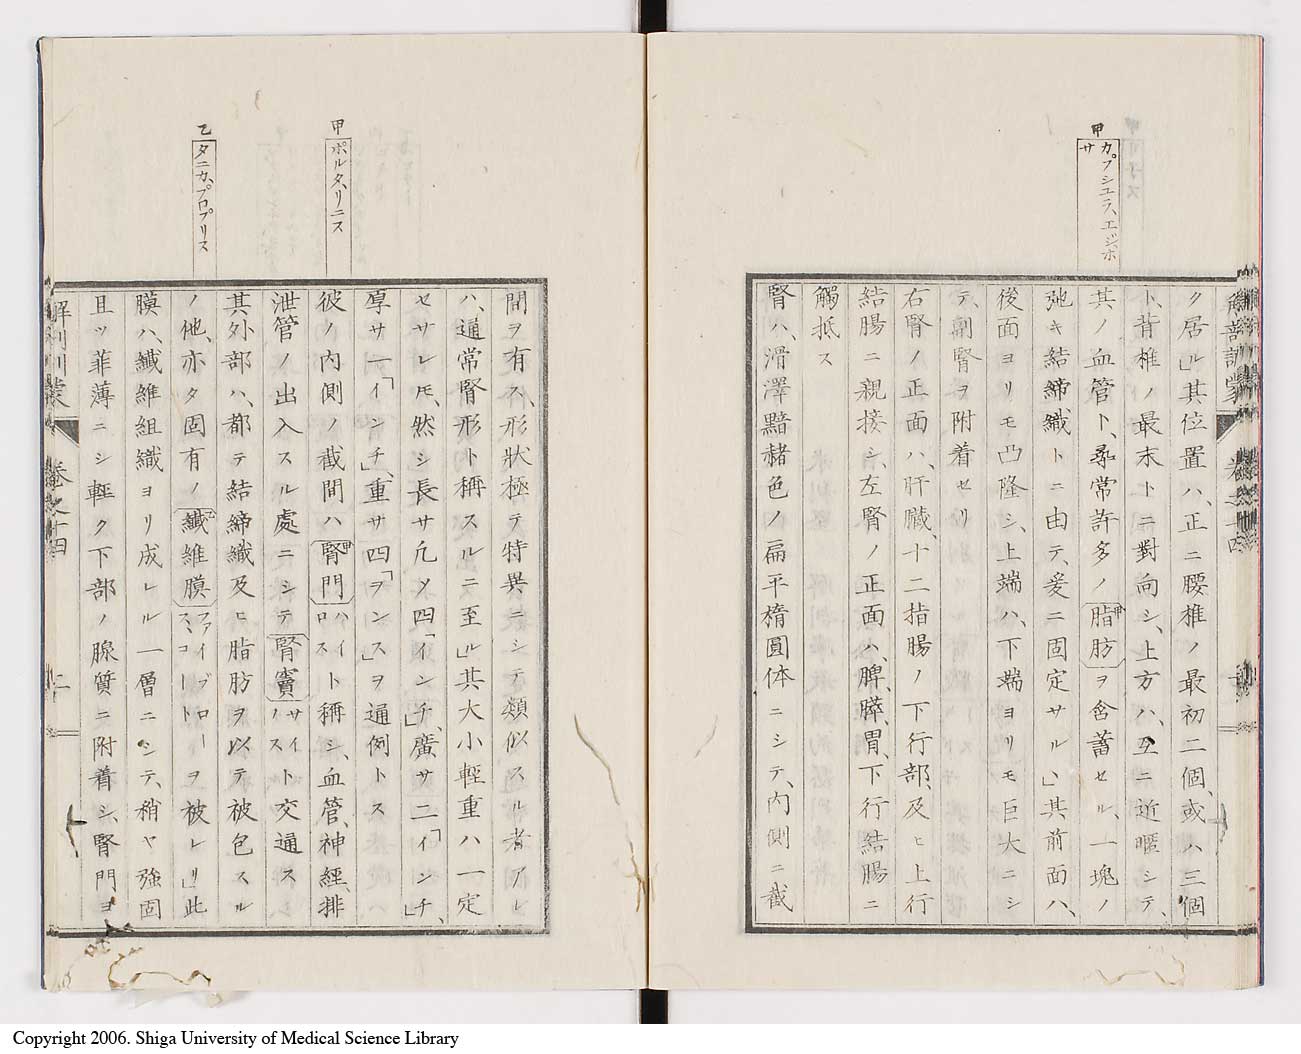 甲
カプシユラ、エジポ
サ
ク居ル」其位置ハ、正ニ腰椎ノ最初二個、或ハ三個
ト、背椎ノ最末トニ對向シ、上方ハ、互ニ近暱シテ、
其ノ血管ト、尋常許多ノ甲脂肪ヲ含蓄セル、一塊ノ
弛キ結締織トニ由テ、爰ニ固定サル」其前面ハ、
後面ヨリモ凸隆シ、上端ハ、下端ヨリモ巨大ニシ
テ、副腎ヲ附着セリ
右腎ノ正面ハ、肝臓、十二指腸ノ下行部、及ヒ上行
結腸ニ親接シ、左腎ノ正面ハ、脾、膵、胃、下行結腸ニ
觸抵ス
腎ハ、滑澤黯赭色ノ扁平橢圓体ニシテ、内側ニ截
解剖訓蒙 巻之十四
甲
ポルタ、リニス
乙
タニカ、プロプリス
間ヲ有ス、形状極テ特異ニシテ類似スル者アレ
ハ、通常腎形ト稱スルニ至ル」其大小輕重ハ一定
セサレ𪜈、然シ長サ凢ソ四「インチ」、廣サ二「インチ」、
厚サ一「インチ」、重サ四「ヲンス」ヲ通例トス
彼ノ内側ノ截間ハ甲腎門ハイロスト稱シ、血管、神經、排
泄管ノ出入スル處ニシテ腎竇サイノスト交通ス
其外部ハ、都テ結締織及ヒ脂肪ヲ以テ被包スル
ノ他、亦タ固有ノ乙纎維膜ファイブロースコートヲ被レリ」此
膜ハ、纎維組織ヨリ成レル一層ニシテ、稍ヤ強固
且ツ菲薄ニシ輕ク下部ノ腺質ニ附着シ、腎門ヨ
解剖訓蒙 巻之十四 二
Copyright 2006. Shiga University of Medical Science Library